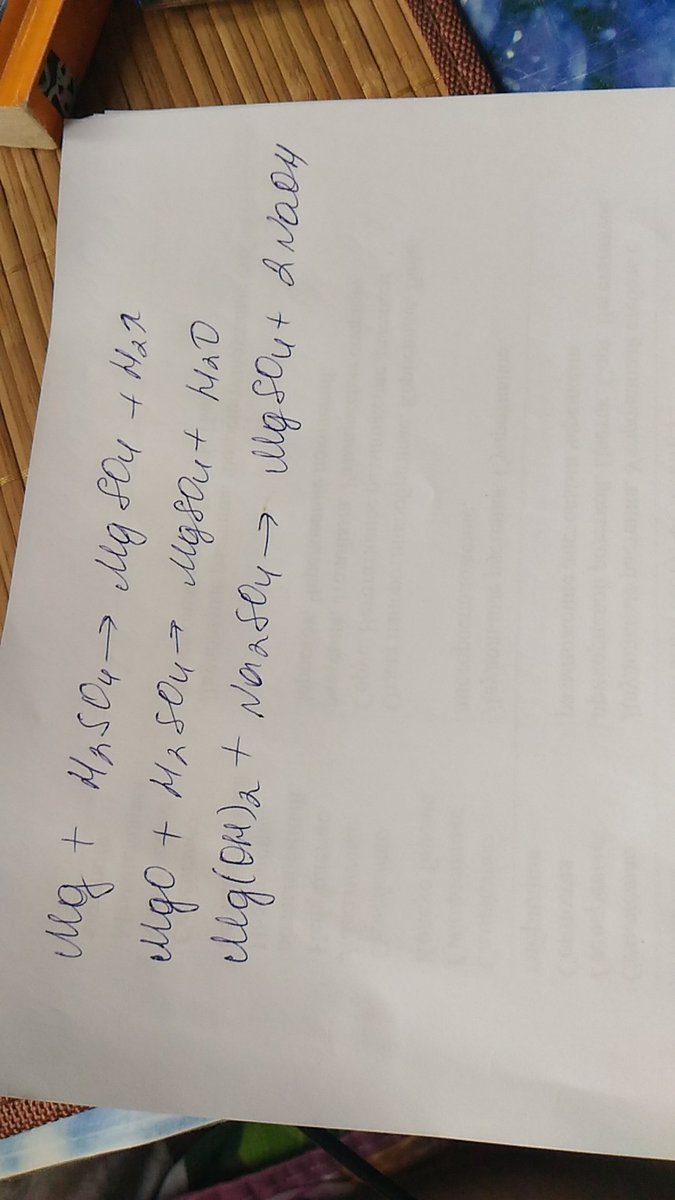 Mg + H2SO4 → MgSO4 + H2↑
MgO + H2SO4 → MgSO4 + H2O
Mg(OH)2 + Na2SO4 → MgSO4 + 2NaOH